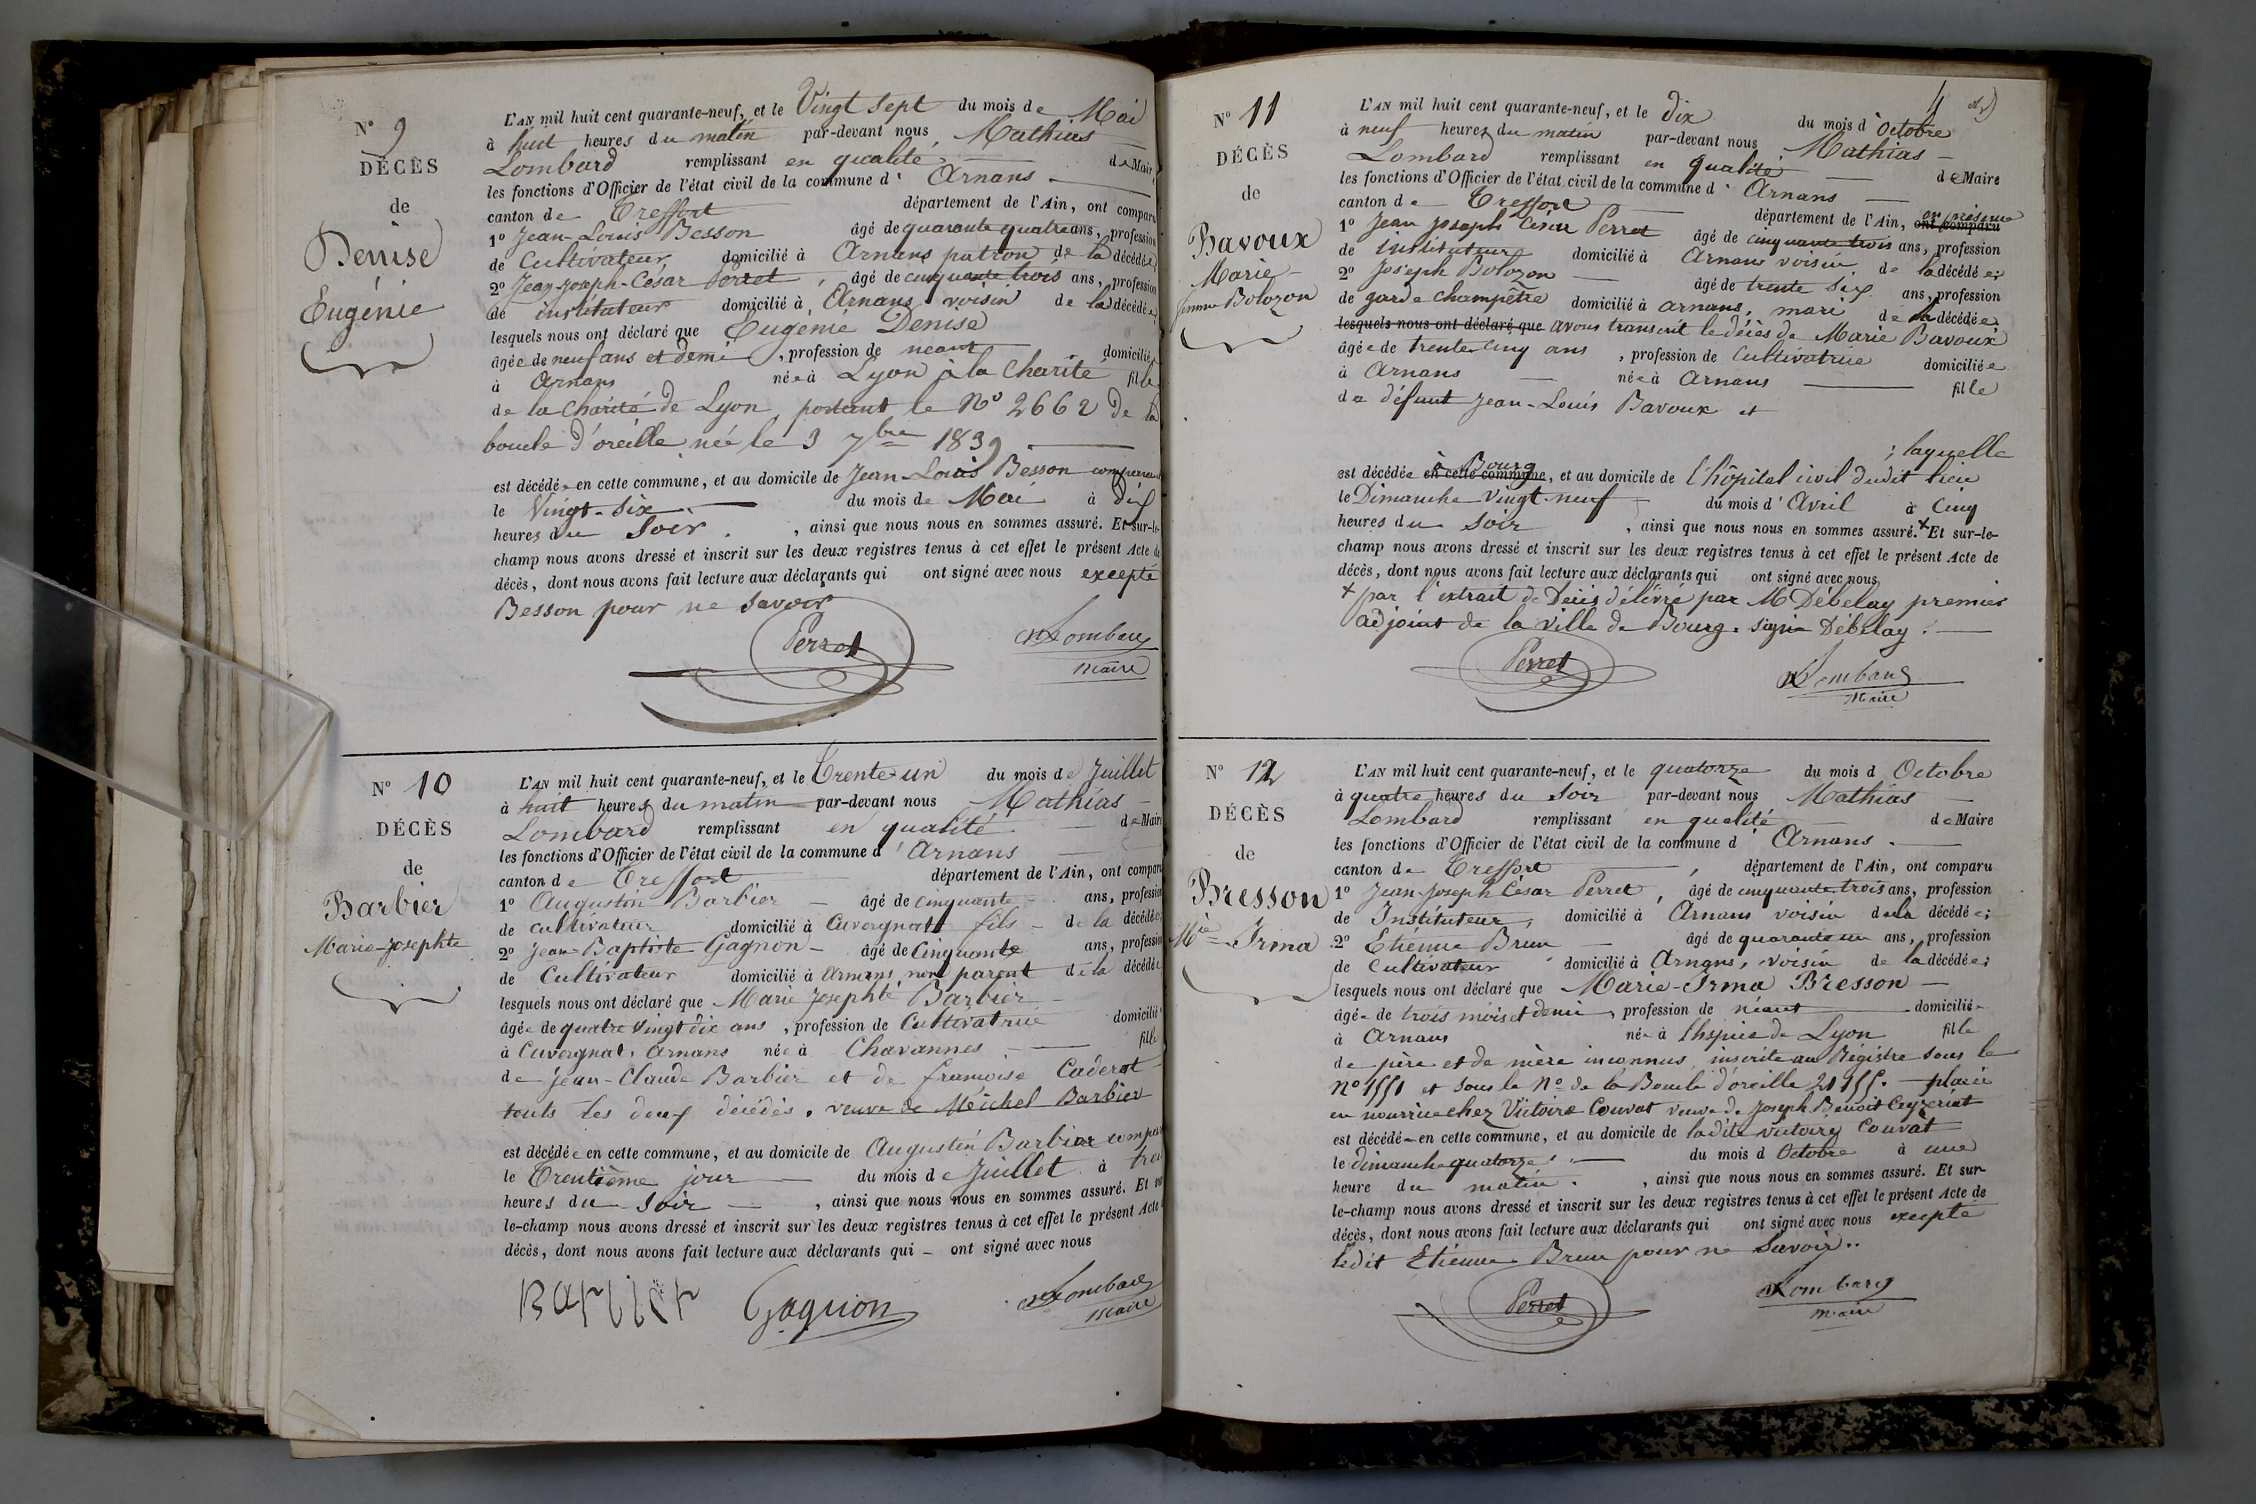 N° 9
DÉCÈS
de
Denise
Eugénie
L'AN mil huit cent quarante-neuf, et le Vingt sept du mois de Mai
à huit heures du matin par-devant nous Mathias
Lombard remplissant en qualité de Maire
les fonctions d'Officier de l'état civil de la commune d' Arnans
canton de Treffort département de l'Ain, ont comparu
1° Jean-Louis Besson âgé de quarante quatre ans, profession
de Cultivateur domicilié à Arnans patron de la décédée;
2° Jean-joseph-César Perret, âgé de cinquante trois ans, profession
de instituteur domicilié à Arnans voisin de la décédée
lesquels nous ont déclaré que Eugénie Denise
âgée de neuf ans et demi, profession de neant domiciliée
à Arnans née à Lyon à la Charité fille
de la Charité de Lyon, portant le N° 2662 de la
boucle d'oreille née le 3 7bre 1839
est décédée en cette commune, et au domicile de Jean-Louis Besson comparant
le Vingt-six du mois de Mai à dix
heures du Soir, ainsi que nous nous en sommes assuré. Et sur-le-
champ nous avons dressé et inscrit sur les deux registres tenus à cet effet le présent Acte de
décès, dont nous avons fait lecture aux déclarants qui ont signé avec nous excepté
Besson pour ne savoir
Perret Lombard
maire
N° 10
DÉCÈS
de
Barbier
Marie-Josephte
L'AN mil huit cent quarante-neuf, et le Trente-un du mois de Juillet
à huit heures du matin par-devant nous Mathias
Lombard remplissant en qualité de Maire
les fonctions d'Officier de l'état civil de la commune d' Arnans
canton de Treffort département de l'Ain, ont comparu
1° Augustin Barbier âgé de cinquante ans, profession
de cultivateur domicilié à Cuvergnat fils de la décédée;
2° Jean-Baptiste Gagnon âgé de Cinquante ans, profession
de Cultivateur domicilié à Arnans, non parent de la décédée
lesquels nous ont déclaré que Marie Josephte Barbier
âgée de quatre vingt dix ans, profession de Cultivatrice domiciliée
à Cuvergnat, Arnans née à Chavannes fille
de Jean-Claude Barbier et de francoise Caderot
touts les deux décédés. veuve de Meichel Barbier
est décédée en cette commune, et au domicile de Augustin Barbier
le Trentième jour du mois de Juillet à
heures du Soir, ainsi que nous nous en sommes assuré. Et
le-champ nous avons dressé et inscrit sur les deux registres tenus à cet effet le présent Acte
décès, dont nous avons fait lecture aux déclarants qui ont signé avec nous
Barbier Gagnion Lombard
maire
N° 11
DÉCÈS
de
Bavoux
Marie
femme Bolozon
L'AN mil huit cent quarante-neuf, et le dix du mois d'Octobre
à neuf heures du matin par-devant nous Mathias
Lombard remplissant en qualité de Maire
les fonctions d'Officier de l'état civil de la commune d' Arnans
canton de Treffort département de l'Ain, ont comparu
1° Jean joseph César Perret âgé de cinquante trois ans, profession
de instituteur domicilié à Arnans voisin de la décédée;
2° Joseph Bolozon âgé de trente six ans, profession
de garde champêtre domicilié à arnans, mari de la décédée
lesquels nous ont déclaré que avons transcrit le décès de Marie Bavoux
âgée de trente cinq ans, profession de Cultivatrice domiciliée
à Arnans née à Arnans fille
de défunt Jean-Louis Bavoux et
; laquelle
à Bourg
est décédée en cette commune, et au domicile de l'hôpital civil dudit lieu
le Dimanche vingt-neuf du mois d'Avril à Cinq
heures du Soir, ainsi que nous nous en sommes assuré. X Et sur-le-
champ nous avons dressé et inscrit sur les deux registres tenus à cet effet le présent Acte de
décès, dont nous avons fait lecture aux déclarants qui ont signé avec nous
X par l'extrait de Décès délivré par M Débelay premier
adjoint de la ville de Bourg. signé Débelay.
Perret Lombard
Maire
N° 12
DÉCÈS
de
Bresson
Mie Irma
L'AN mil huit cent quarante-neuf, et le quatorze du mois d Octobre
à quatre heures du Soir par-devant nous Mathias
Lombard remplissant en qualité de Maire
les fonctions d'Officier de l'état civil de la commune d' Arnans
canton de Treffort, département de l'Ain, ont comparu
1° Jean-Joseph César Perret, âgé de cinquante trois ans, profession
de Instituteur, domicilié à Arnans voisin de la décédée;
2° Etiénne Brun âgé de quarante un ans, profession
de Cultivateur domicilié à Arnans, voisin de la décédée;
lesquels nous ont déclaré que Marie-Irma Bresson
âgée de trois mois et demi, profession de néant domiciliée
à Arnans née à lhspice de Lyon fille
de père et de mère inconnus, inscrite au Régistre sous le
N° 1551 et sous le N° de la Boucle d'oreille 21155. placée
en nourrice chez Victoire Couvat veuve de Joseph Benoit Ceyzeriat
est décédée en cette commune, et au domicile de ladite victoire Couvat
le dimanche quatorze du mois d Octobre à une
heure du matin, ainsi que nous nous en sommes assuré. Et sur-
le-champ nous avons dressé et inscrit sur les deux registres tenus à cet effet le présent Acte de
décès, dont nous avons fait lecture aux déclarants qui ont signé avec nous excepté
ledit Etiénne Brun pour ne Savoir..
Perret Lombard
maire